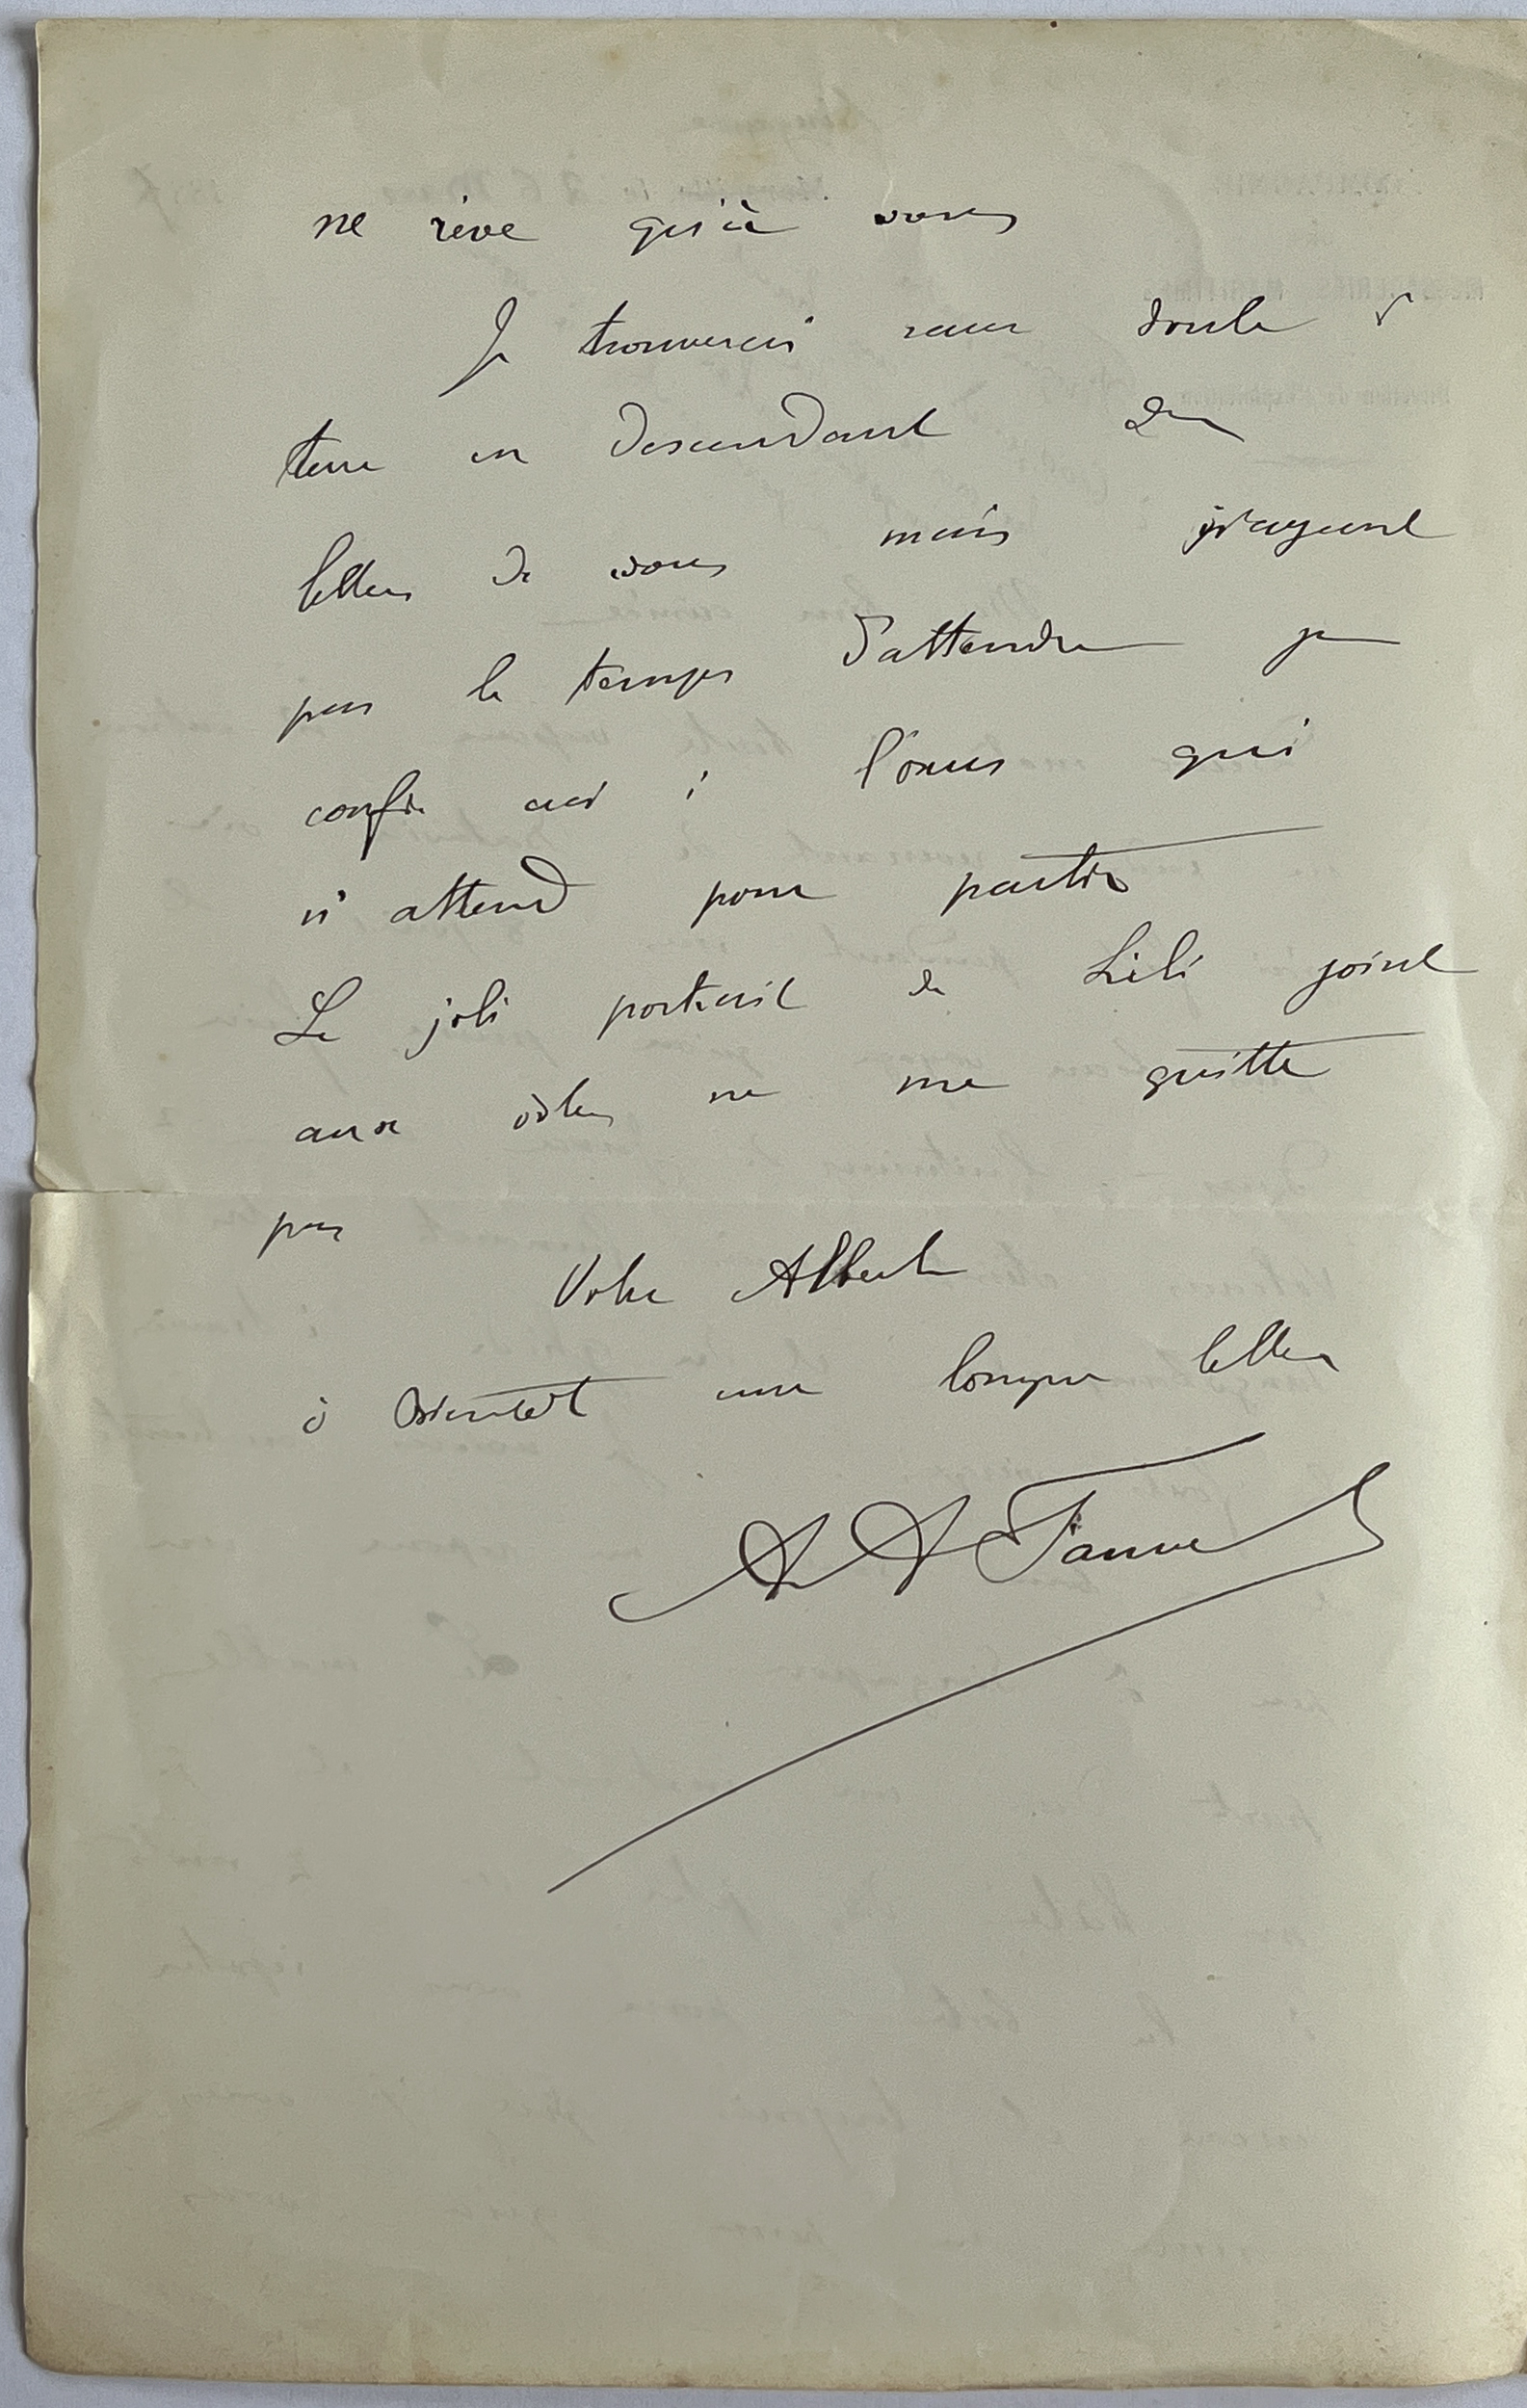 ne rêve qu'à vous
Je trouverai sans doute à
terre en descendant des
lettres de vous mais n'ayant
pas le temps d'attendre je
confie ceci à l'omnis qui
n'attend pour partir
Le joli portrait de Lili joint
aux vôtres ne me quitte
pas
Votre Albert
à bientôt une longue lettre
A A Fauvel